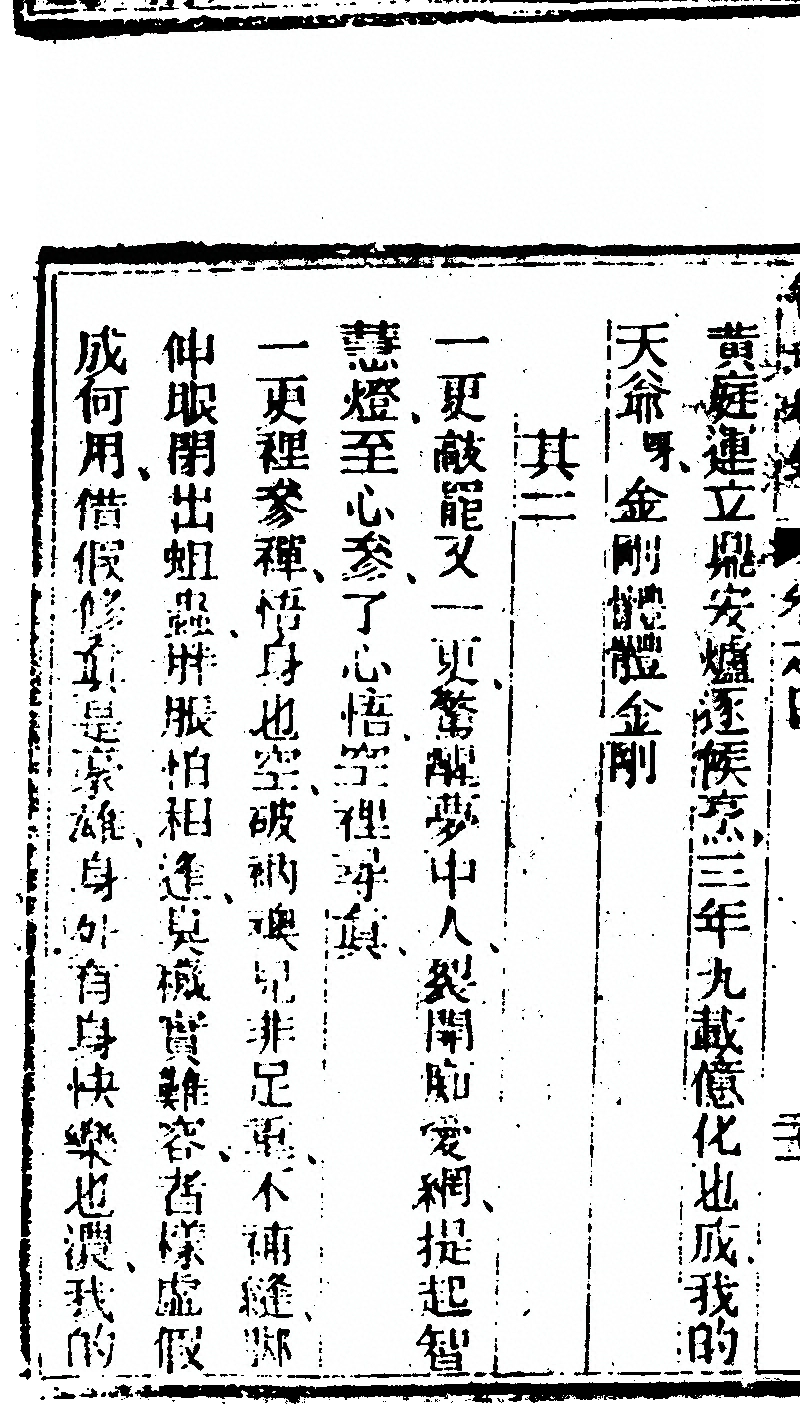 黃庭運立鼎安爐逐候烹三年九載億化也成我的
天爺呀金剛體體金剛
其二
一更敲罷又一更驚醒夢中人裂開痴愛網提起智
慧燈至心參了心悟空裡尋眞
一更裡參禪悟身也空破衲襖兒非足重不補縫郎
伸眼閉出蛆蟲胖脹怕相逢臭樣實難容這樣虛假
成何用借假修眞是豪雄身外有身快樂也濃我的